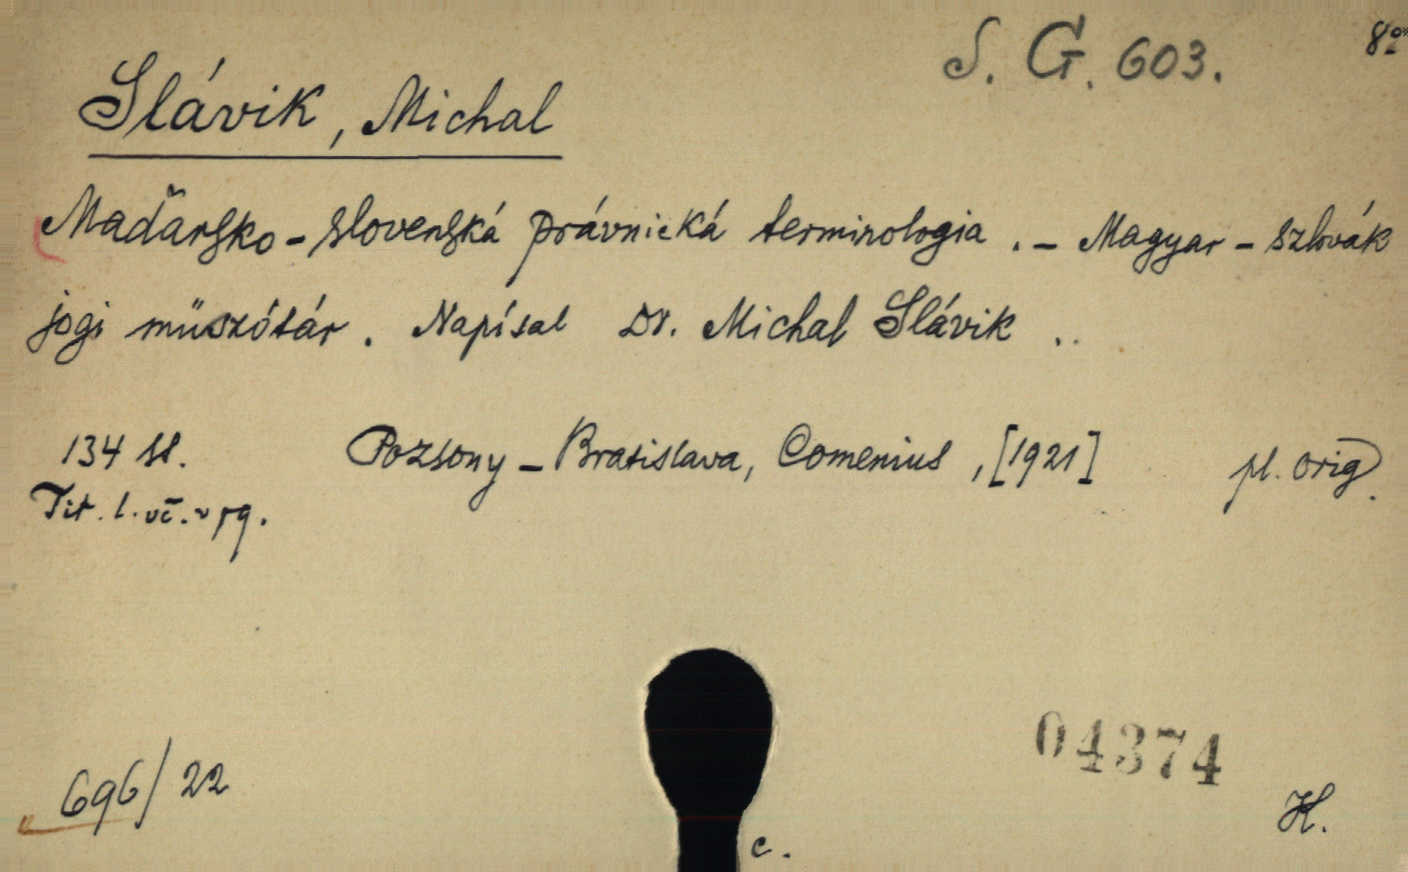 S. G. 603. 8°
Slávik, Michal
Maďarsko-slovenská právnická terminologia. - Magyar-szlovák
jogi müszótár. Napísal Dr. Michal Slávik ..
134 ss. Pozsony - Bratislava, Comenius, [1921] pl. orig.
Tit. l.
696/22
04374
H.
c.